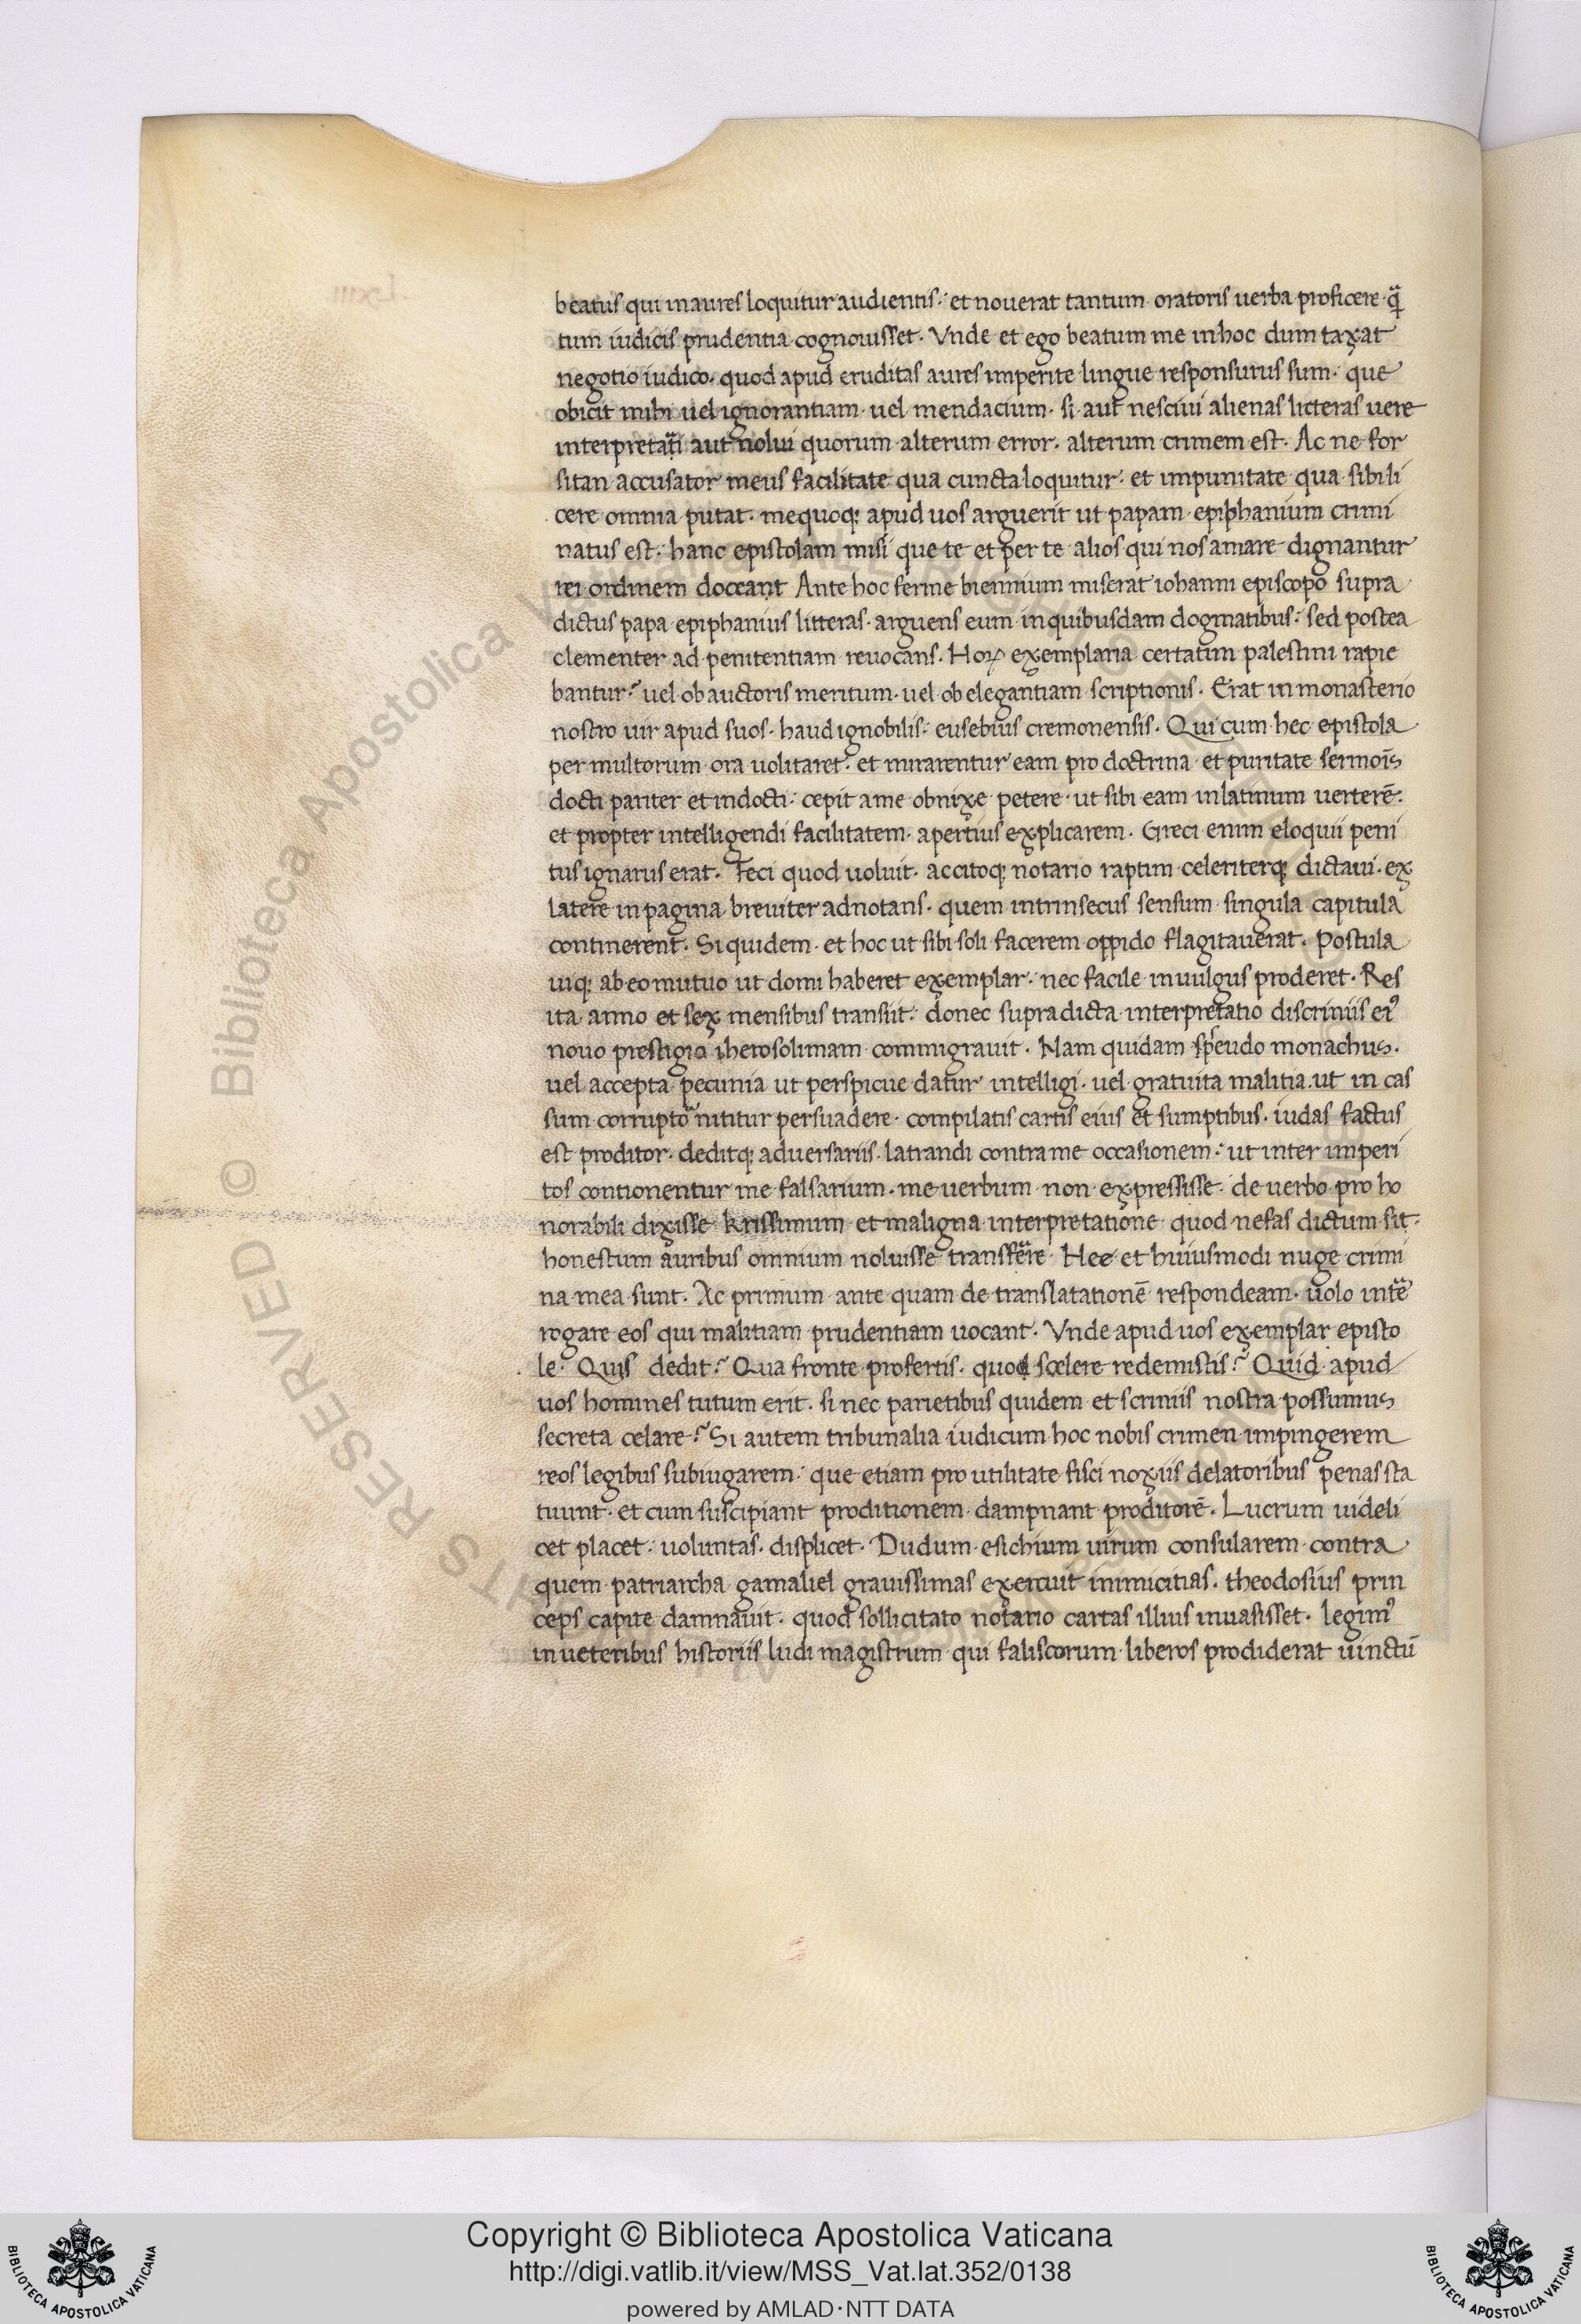 beatus qui in aures loquitur audientis· et nouerat tantum oratoris uerba proficere· qᷓ
tum iudicis prudentia cognouisset· Vnde et ego beatum me in hoc dum taxat
negotio iudico· quod apud eruditas aures imperite lingue responsurus sum· que
obicit mihi uel ignorantiam· uel mendacium· si aut nesciui alienas litteras uere
interpretari aut nolui quorum alterum error· alterum crimem est· Ac ne for
sitan accusator meus facilitate qua cuncta loquitur· et impunitate qua sibi li
cere omnia putat· me quoq; apud uos arguerit ut papam epiphanium crimi
natus est· hanc epistolam misi que te et per te alios qui nos amare dignantur
rei ordinem doceant Ante hoc ferme biennium miserat iohanni episcopo supra
dictus papa epiphanius litteras· arguens eum in quibusdam dogmatibus· sed postea
clementer ad penitentiam reuocans· Hoꝝ exemplaria certatim palestini rapie
bantur· uel ob auctoris meritum· uel ob elegantiam scriptionis· Erat in monasterio
nostro uir apud suos· haud ignobilis· eusebius cremonensis· Qui cum hec epistola
per multorum ora uolitaret· et mirarentur eam pro doctrina et puritate sermoīs
docti pariter et indocti· cepit a me obnixe petere ut sibi eam in latinum uerterē·
et propter intelligendi facilitatem· apertius explicarem· Greci enim eloquii peni
tus ignarus erat· Feci quod uoluit· accitoq; notario raptim celeriterq; dictaui· ex
latere in pagina breuiter adnotans· quem intrinsecus sensum singula capitula
continerent· Si quidem et hoc ut sibi soli facerem oppido flagitauerat· Postula
uiq; ab eo mutuo ut domi haberet exemplar· nec facile in uulgus proderet· Res
ita anno et sex mensibus transiit· donec supra dicta interpretatio discriniis ei᾽
nouo prestigio iherosolimam commigrauit· Nam quidam speudo monachus·
uel accepta pecunia ut perspicue datur intelligi· uel gratuita malitia· ut in cas
sum corruptor nititur persuadere· compilatis cartis eius et sumptibus· iudas factus
est proditor· deditq; aduersariis· latrandi contra me occasionem· ut inter imperi
tos contionentur me falsarium· me uerbum non expressisse· de uerbo pro ho
norabili dixisse krissimum et maligna interpretatione quod nefas dictum sit·
honestum auribus omnium noluisse transferre· Hec et huiusmodi nuge crimi
na mea sunt· Ac primum ante quam de translatationē respondeam· uolo inter
rogare eos qui malitiam prudentiam uocant· Vnde apud uos exemplar episto
le· Quis dedit· Qua fronte profertis· quod scelere redemistis· Quid apud
uos homines tutum erit· si nec parietibus quidem et scriniis nostra possumus
secreta celare· Si autem tribunalia iudicum hoc nobis crimen impingerem
reos legibus subiugarem· que etiam pro utilitate fisci noxiis delatoribus penas sta
tuunt· et cum suscipiant proditionem dampnant proditorē· Lucrum uideli
cet placet· uoluntas· displicet· Dudum esichium uirum consularem contra
quem patriarcha gamaliel grauissimas exercuit inimicitias· theodosius prin
ceps capite damnauit· quod sollicitato notario cartas illius inuasisset· legim᾽
in ueteribus historiis ludi magistrum qui faliscorum liberos prodiderat uinctū
© Biblioteca Apostolica Vaticana
RESERVED
Copyright © Biblioteca Apostolica Vaticana
http://digi.vatlib.it/view/MSS_Vat.lat.352/0138
powered by AMLAD·NTT DATA
BIBLIOTECA APOSTOLICA VATICANA
BIBLIOTECA APOSTOLICA VATICANA